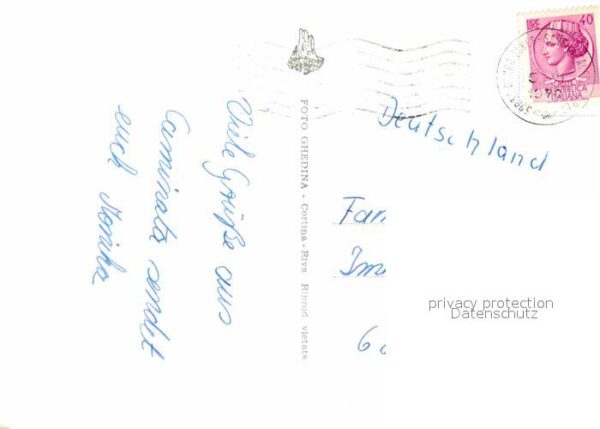 Viele Grüße aus
Caminata sendet
euch Monika
FOTO GHEDINA - Cortina - Riva Riprod. vietata
LIRE 40
REPUBBLICA
ITALIANA
Deutschland
Fam
Im
6
privacy protection
Datenschutz